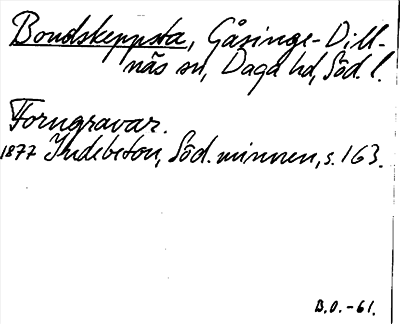 Bondskeppsta, Gåsinge-Dill-
näs sn, Daga hd, Söd. l.
Forngravar.
1877 Indebetou, Söd. minnen, s. 163.
B.O.-61.